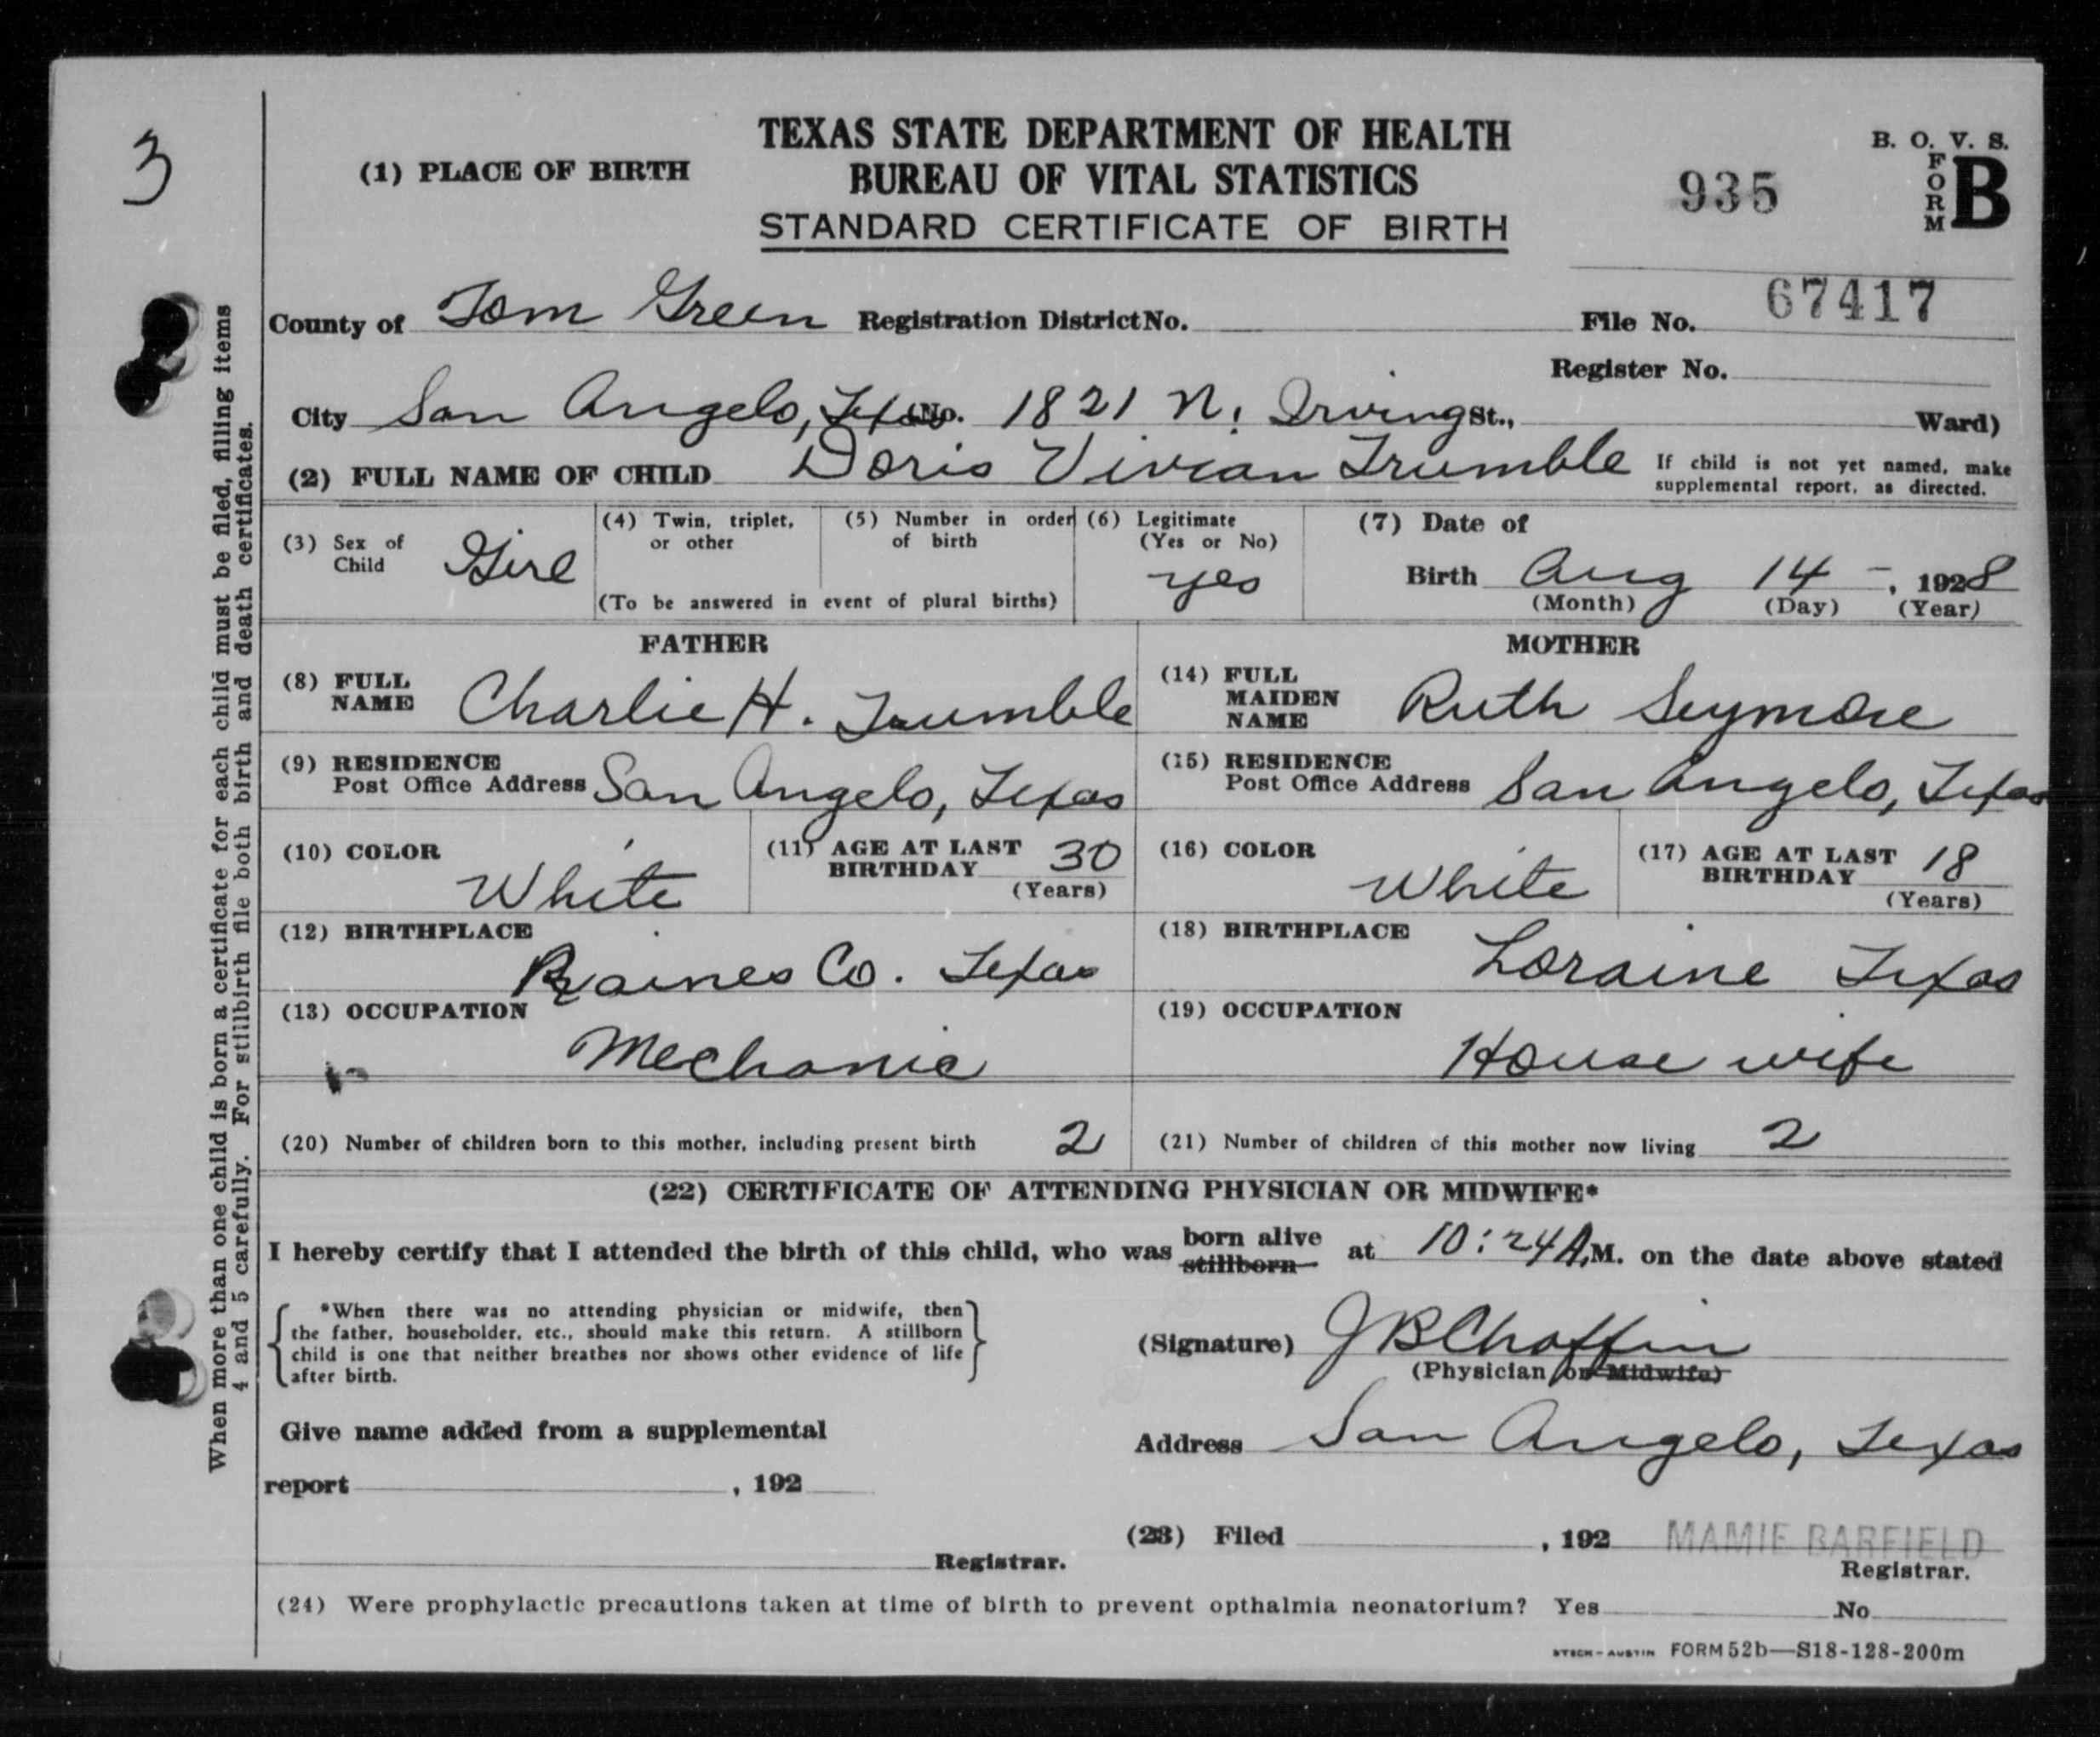 3
TEXAS STATE DEPARTMENT OF HEALTH
BUREAU OF VITAL STATISTICS
STANDARD CERTIFICATE OF BIRTH
(1) PLACE OF BIRTH
935
B. O. V. S.
FORM B
County of Tom Green Registration District No. File No. 67417
Register No.
City San Angelo, Texas No. 1821 N. Irving St., Ward)
(2) FULL NAME OF CHILD Doris Vivian Trumble If child is not yet named, make
supplemental report, as directed.
(3) Sex of Child Girl
(4) Twin, triplet, or other
(5) Number in order of birth
(To be answered in event of plural births)
(6) Legitimate (Yes or No) yes
(7) Date of
Birth Aug 14 - , 1928
(Month) (Day) (Year)
FATHER
(8) FULL NAME Charlie H. Trumble
(9) RESIDENCE
Post Office Address San Angelo, Texas
(10) COLOR White
(11) AGE AT LAST BIRTHDAY 30 (Years)
(12) BIRTHPLACE Raines Co. Texas
(13) OCCUPATION Mechanic
MOTHER
(14) FULL MAIDEN NAME Ruth Seymore
(15) RESIDENCE
Post Office Address San Angelo, Texas
(16) COLOR White
(17) AGE AT LAST BIRTHDAY 18 (Years)
(18) BIRTHPLACE Loraine Texas
(19) OCCUPATION House wife
(20) Number of children born to this mother, including present birth 2
(21) Number of children of this mother now living 2
(22) CERTIFICATE OF ATTENDING PHYSICIAN OR MIDWIFE*
I hereby certify that I attended the birth of this child, who was born alive stillborn at 10:24 A.M. on the date above stated
*When there was no attending physician or midwife, then
the father, householder, etc., should make this return. A stillborn
child is one that neither breathes nor shows other evidence of life
after birth.
(Signature) J B Chaffin
(Physician or Midwife)
Give name added from a supplemental
report , 192
Address San Angelo, Texas
(23) Filed , 192 MAMIE BARFIELD
Registrar.
Registrar.
(24) Were prophylactic precautions taken at time of birth to prevent opthalmia neonatorium? Yes No
STECK-AUSTIN FORM 52b—S18-128-200m
When more than one child is born a certificate for each child must be filed, filling items
4 and 5 carefully. For stillbirth file both birth and death certificates.